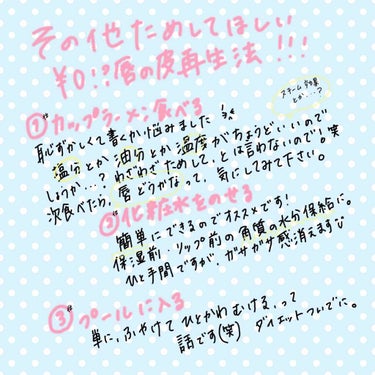 その他ためしてほしい
¥0!?唇の皮再生法!!!
スチーム効果
とか…?
①カップラーメン食べる
恥ずかしくて書くか悩みました!
塩分とか油分とか温度がちょうどいいので
しょうか…?わざわざためして、とは言わないので!笑
次食べたら、唇どうかなって、気にしてみて下さい。
②化粧水をのせる
簡単にできるのでオススメです!
保湿前、リップ前の角質の水分保給に。
ひと手間ですが、ガサガサ感消えます
③プールに入る
単に、ふやけてひとかわむける、って
話です(笑) ダイエットついでに。